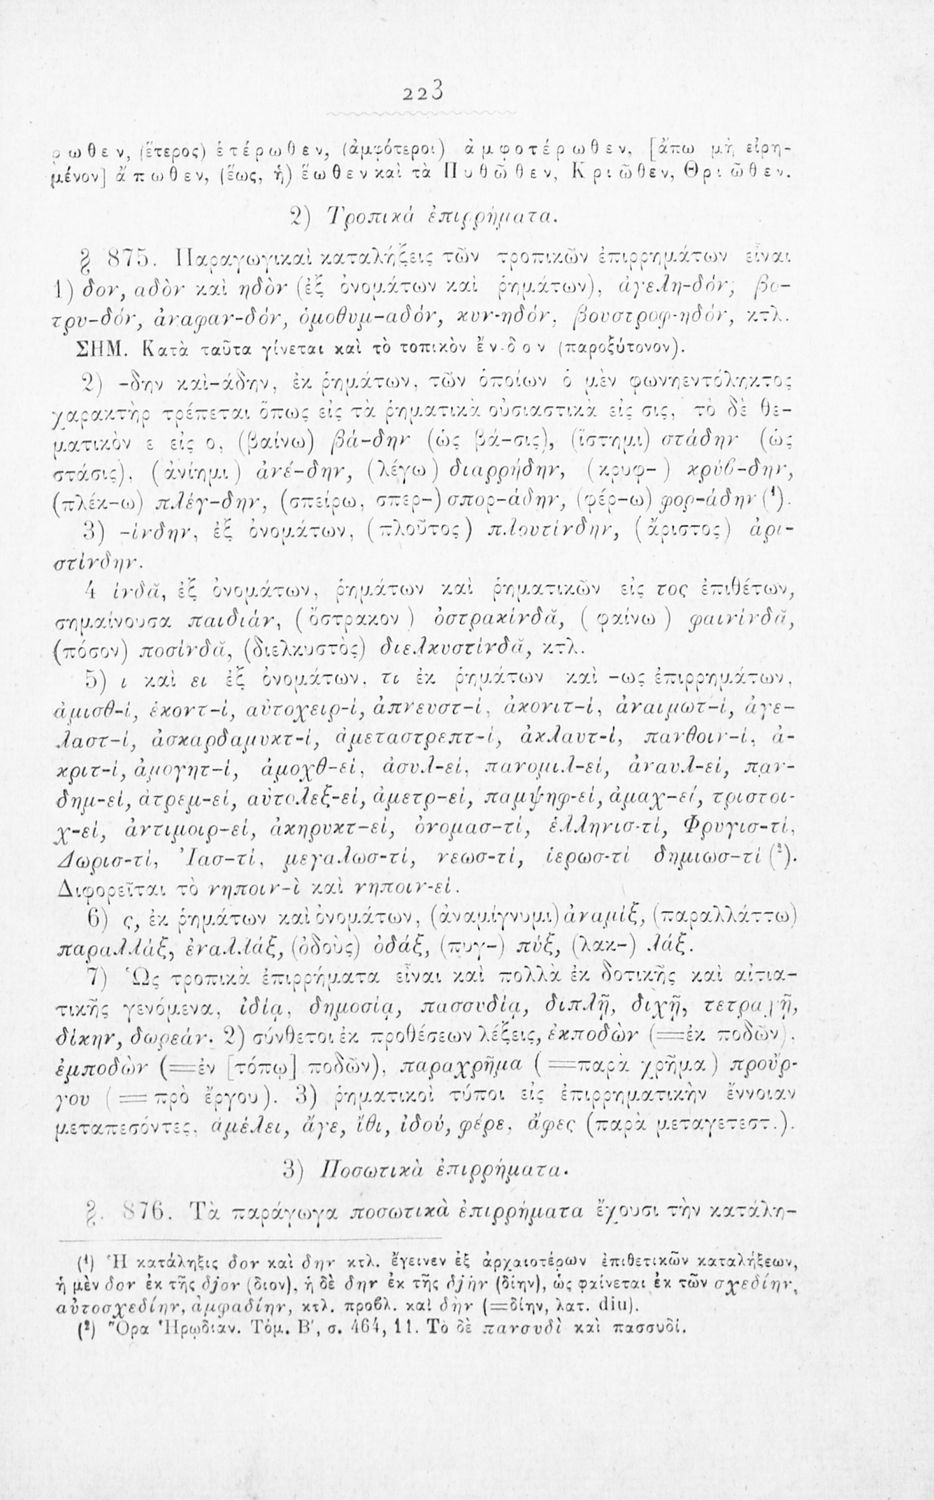 223
ρωθεν, (ἕτερος) ἑτέρωθεν, (ἀμφότεροι) ἀμφοτέρωθεν, [ἄπω μὴ εἰρη-
μένον] ἄπωθεν, (ἕως, ἡ) ἕωθεν καὶ τὰ Πυθῶθεν, Κριῶθεν, Θριῶθεν.
2) Τροπικὰ ἐπιρρήματα.
§ 875. Παραγωγικαὶ καταλήξεις τῶν τροπικῶν ἐπιρρημάτων εἶναι
1) δον, αδὸν καὶ ηδὸν (ἐξ ὀνομάτων καὶ ῥημάτων), ἀγελη-δόν, βο-
τρυ-δόν, ἀναφαν-δόν, ὁμοθυμ-αδόν, κυν-ηδόν, βουστροφ-ηδόν, κτλ.
ΣΗΜ. Κατὰ ταῦτα γίνεται καὶ τὸ τοπικὸν ἔν-δον (παροξύτονον).
2) -δην καὶ-άδην, ἐκ ῥημάτων, τῶν ὁποίων ὁ μὲν φωνηεντόληκτος
χαρακτὴρ τρέπεται ὅπως εἰς τὰ ῥηματικὰ οὐσιαστικὰ εἰς σις, τὸ δὲ θε-
ματικὸν ε εἰς ο, (βαίνω) βά-δην (ὡς βά-σις), (ἵστημι) στάδην (ὡς
στάσις), (ἀνίημι) ἀνέ-δην, (λέγω) διαρρήδην, (κρυφ-) κρύβ-δην,
(πλέκ-ω) πλέγ-δην, (σπείρω, σπερ-) σπορ-άδην, (φέρ-ω) φορ-άδην (¹).
3) -ίνδην, ἐξ ὀνομάτων, (πλοῦτος) πλουτίνδην, (ἄριστος) ἀρι-
στίνδην.
4 ίνδᾰ, ἐξ ὀνομάτων, ῥημάτων καὶ ῥηματικῶν εἰς τος ἐπιθέτων,
σημαίνουσα παιδιάν, (ὄστρακον) ὀστρακίνδᾰ, (φαίνω) φαινίνδᾰ,
(πόσον) ποσίνδᾰ, (διελκυστὸς) διελκυστίνδᾰ, κτλ.
5) ι καὶ ει ἐξ ὀνομάτων, τι ἐκ ῥημάτων καὶ -ως ἐπιρρημάτων,
ἀμισθ-ί, ἑκοντ-ί, αὐτοχειρ-ί, ἀπνευστ-ί, ἀκονιτ-ί, ἀναιμωτ-ί, ἀγε-
λαστ-ί, ἀσκαρδαμυκτ-ί, ἀμεταστρεπτ-ί, ἀκλαυτ-ί, πανθοιν-ί, ἀ-
κριτ-ί, ἀμογητ-ί, ἀμοχθ-εί, ἀσυλ-εί, πανομιλ-εί, ἀναυλ-εί, παν-
δημ-εί, ἀτρεμ-εί, αὐτολεξ-εί, ἀμετρ-εί, παμψηφ-εί, ἀμαχ-εί, τριστοι-
χ-εί, ἀντιμοιρ-εί, ἀκηρυκτ-εί, ὀνομασ-τί, ἑλληνισ-τί, Φρυγισ-τί,
Δωρισ-τί, Ἰασ-τί, μεγαλωσ-τί, νεωσ-τί, ἱερωσ-τί δημιωσ-τί (²).
Διφορεῖται τὸ νηποιν-ὶ καὶ νηποιν-εί.
6) ς, ἐκ ῥημάτων καὶ ὀνομάτων, (ἀναμίγνυμι) ἀναμίξ, (παραλλάττω)
παραλλάξ, ἐναλλάξ, (ὀδοὺς) ὀδάξ, (πυγ-) πύξ, (λακ-) λάξ.
7) Ὡς τροπικὰ ἐπιρρήματα εἶναι καὶ πολλὰ ἐκ δοτικῆς καὶ αἰτια-
τικῆς γενόμενα, ἰδίᾳ, δημοσίᾳ, πασσυδίᾳ, διπλῇ, διχῇ, τετραχῇ,
δίκην, δωρεάν. 2) σύνθετοι ἐκ προθέσεων λέξεις, ἐκποδὼν (=ἐκ ποδῶν),
ἐμποδὼν (=ἐν [τόπῳ] ποδῶν), παραχρῆμα (=παρὰ χρῆμα) προὔρ-
γου (=πρὸ ἔργου). 3) ῥηματικοὶ τύποι εἰς ἐπιρρηματικὴν ἔννοιαν
μεταπεσόντες, ἀμέλει, ἄγε, ἴθι, ἰδού, φέρε, ἄφες (παρὰ μεταγετεστ.).
3) Ποσωτικὰ ἐπιρρήματα.
§. 876. Τὰ παράγωγα ποσωτικὰ ἐπιρρήματα ἔχουσι τὴν κατάλη-
(¹) Ἡ κατάληξις δον καὶ δην κτλ. ἔγεινεν ἐξ ἀρχαιοτέρων ἐπιθετικῶν καταλήξεων,
ἡ μὲν δον ἐκ τῆς δjον (διον), ἡ δὲ δην ἐκ τῆς δjην (δίην), ὡς φαίνεται ἐκ τῶν σχεδίην,
αὐτοσχεδίην, ἀμφαδίην, κτλ. προβλ. καὶ δὴν (=δίην, λατ. diu).
(²) Ὅρα Ἡρωδιαν. Τόμ. Β', σ. 464, 11. Τὸ δὲ πανσυδὶ καὶ πασσυδί.